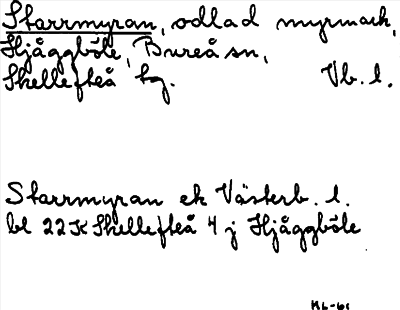 Starrmyran, odlad myrmark,
Hjåggböle, Bureå sn,
Skellefteå tg. Vb. l.
Starrmyran ek Västerb. l.
bl 22K Skellefteå 4 j Hjåggböle
ML-61